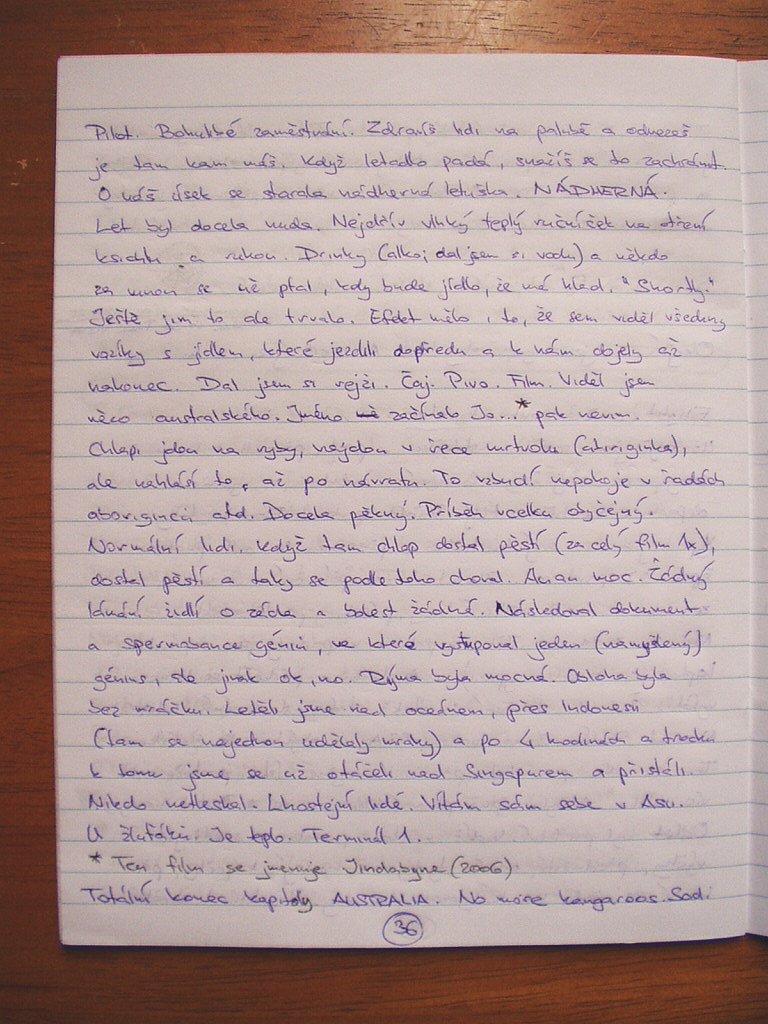 Pilot. Bohulibé zaměstnání. Zdravíš lidi na palubě a odvezeš
je tam kam máš. Když letadlo padá, snažíš se to zachránit.
O náš úsek se starala nádherná letuška. NÁDHERNÁ.
Let byl docela nuda. Nejdřív vlhký teplý ručníček na otření
ksichtu a rukou. Drinky (alko, dal jsem si vodu) a někdo
za mnou se už ptal, kdy bude jídlo, že má hlad. "Shortly."
Ještě jim to ale trvalo. Efekt mělo i to, že sem viděl všechny
vozíky s jídlem, které jezdili dopředu a k nám dojely až
nakonec. Dal jsem si rejži. Čaj. Pivo. Film. Viděl jsem
něco australského. Jméno začínalo Jo...* pak nevim.
Chlapi jdou na ryby, najdou v řece mrtvolu (aboriginka),
ale nahlásí to, až po návratu. To vzbudí nepokoje v řadách
aboriginců atd. Docela pěkný. Příběh vcelku obyčejný.
Normální lidi. Když tam chlap dostal pěstí (za celý film 1x),
dostal pěstí a taky se podle toho choval. Au au moc. Žádný
lámání židlí o záda a bolest žádná. Následoval dokument
o spermabance géniů, ve které vystupoval jeden (namyšlený)
génius, ale jinak ok, no. Rýma byla mocná. Obloha byla
bez mráčku. Letěli jsme nad oceánem, přes Indonesii
(tam se najednou udělaly mraky) a po 4 hodinách a trochu
k tomu jsme se už otáčeli nad Singapurem a přistáli.
Nikdo netleskal. Lhostejní lidé. Vítám sám sebe v Asii.
U žluťáků. Je teplo. Terminál 1.
* Ten film se jmenuje Jindabyne (2006)
Totální konec kapitoly AUSTRALIA. No more kangaroos. Sad.
36